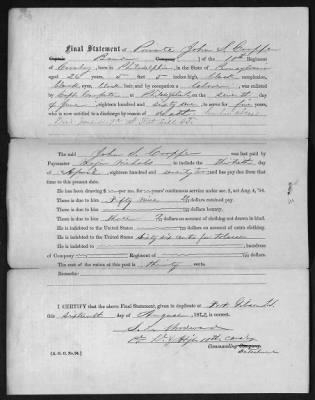 Final Statement of Private John S. Cropper
Captain Band Company of 10th Regiment
of Cavalry, born in Philadelphia, in the State of Pennsylvania
aged 26 years, 5 feet 5 inches high, black complexion,
black eyes, black hair, and by occupation a laborer, was enlisted
by Capt. Carpenter at Philadelphia on the day
of June eighteen hundred and sixty one, to serve for five years,
who now entitled to a discharge by reason of death
Fort Sill
The said John S. Cropper was last paid by
Paymaster Major Nichols to include the thirtieth day
of April, eighteen hundred and seventy two and has pay due from that
time to the present date.
He has been drawing $ per mo. for years' continuous service under sec. 2, act Aug. 4, '54.
There is due to him Fifty nine dollars retained pay.
There is due to him dollars bounty.
There is due to him three dollars on account of clothing not drawn in kind.
He is indebted to the United States dollars on account of extra clothing.
He is indebted to the United States Sixty six cents for tobacco
He is indebted to , laundress
of Company Regiment of dollars.
The cost of the ration at this post is thirty cents.
Remarks:
I CERTIFY that the above Final Statement, given in duplicate at Fort
this sixteenth day of August, 1872, is correct.
S. L. Woodward
1st Lt. & 10th Cavalry
Commanding Company.
Detachment
[A. G. O. No. 94.]